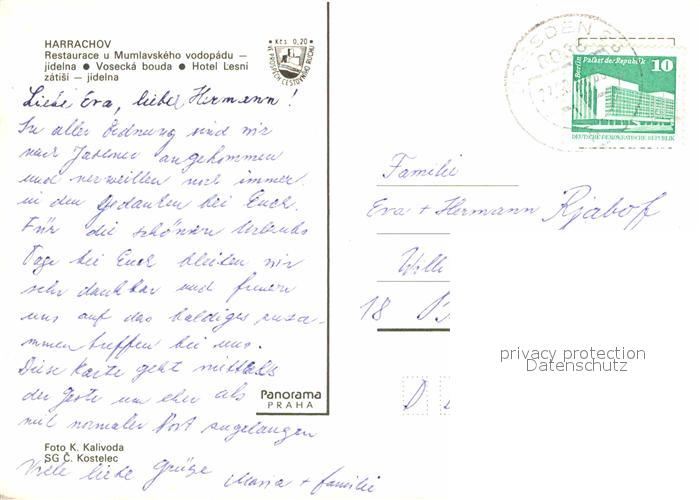 HARRACHOV
Restaurace u Mumlavského vodopádu –
jídelna ● Vosecká bouda ● Hotel Lesní
zátiší – jídelna
Kčs 0,20
VE PROSPĚCH CESTOVNÍHO RUCHU
Liebe Eva, lieber Hermann!
In aller Ordnung sind wir
nach angekommen
und verweilen noch immer
in den Gedanken bei Euch.
Für die schönen Urlaubs
Tage bei Euch bleiben wir
sehr dankbar und freuen
uns auf das baldiges zusa-
mmentreffen bei uns.
Diese Karte geht mittels
der Gäste um eher als
mit normaler Post angelangen
Viele liebe Grüße Maria + familie
Foto K. Kalivoda
SG Č. Kostelec
Panorama
PRAHA
DRESDEN
Berlin Palast der Republik 10
DEUTSCHE DEMOKRATISCHE REPUBLIK
Familie
Eva + Hermann Rjaboff
18
D
privacy protection
Datenschutz